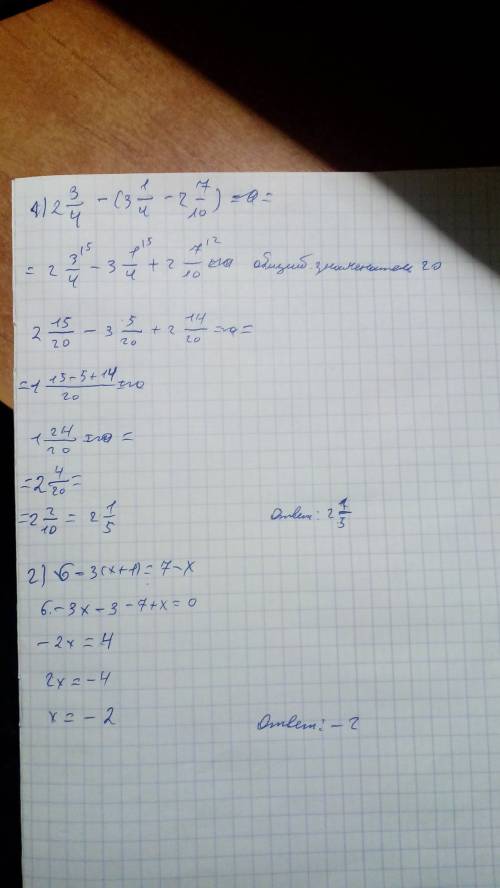 1) 2 3/4 - (3 1/4 - 2 7/10) =
= 2 3/4 |5 - 3 1/4 |5 + 2 7/10 |2 общий знаменатель 20
2 15/20 - 3 5/20 + 2 14/20 =
= 1 (15-5+14)/20
1 24/20 =
= 2 4/20 =
= 2 2/10 = 2 1/5 Ответ: 2 1/5
2) 6 - 3(x+1) = 7-x
6 - 3x - 3 - 7 + x = 0
-2x = 4
2x = -4
x = -2 Ответ: -2